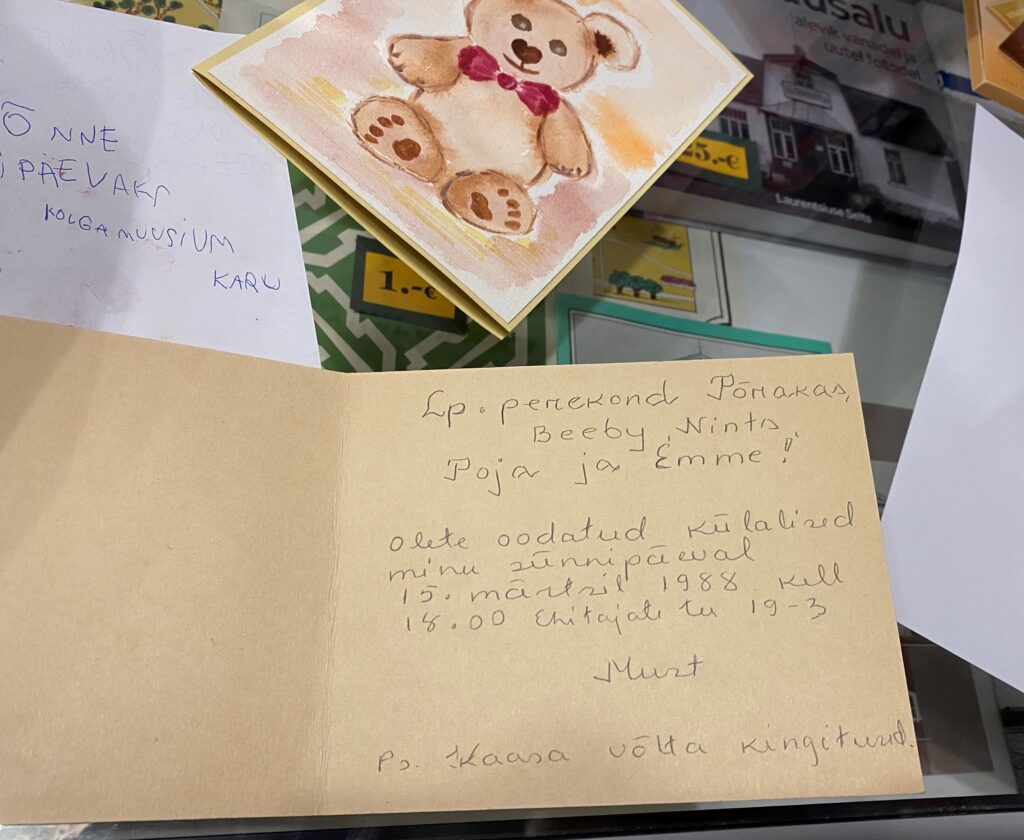 ÕNNE
PÄEVAKS
KOLGA MUUSIUM
KARU
alevik vanadel ja
uutel fotodel
25.-€
Laurentsiuse Selts
1.-€
Lp. perekond Põrakas,
Beeby, Nints,
Poja ja Emme!
olete oodatud külalised
minu sünnipäeval
15. märtsil 1988 kell
18.00 Ehitajate tee 19-3
Murt
Ps. Kaasa võtta kingitused.